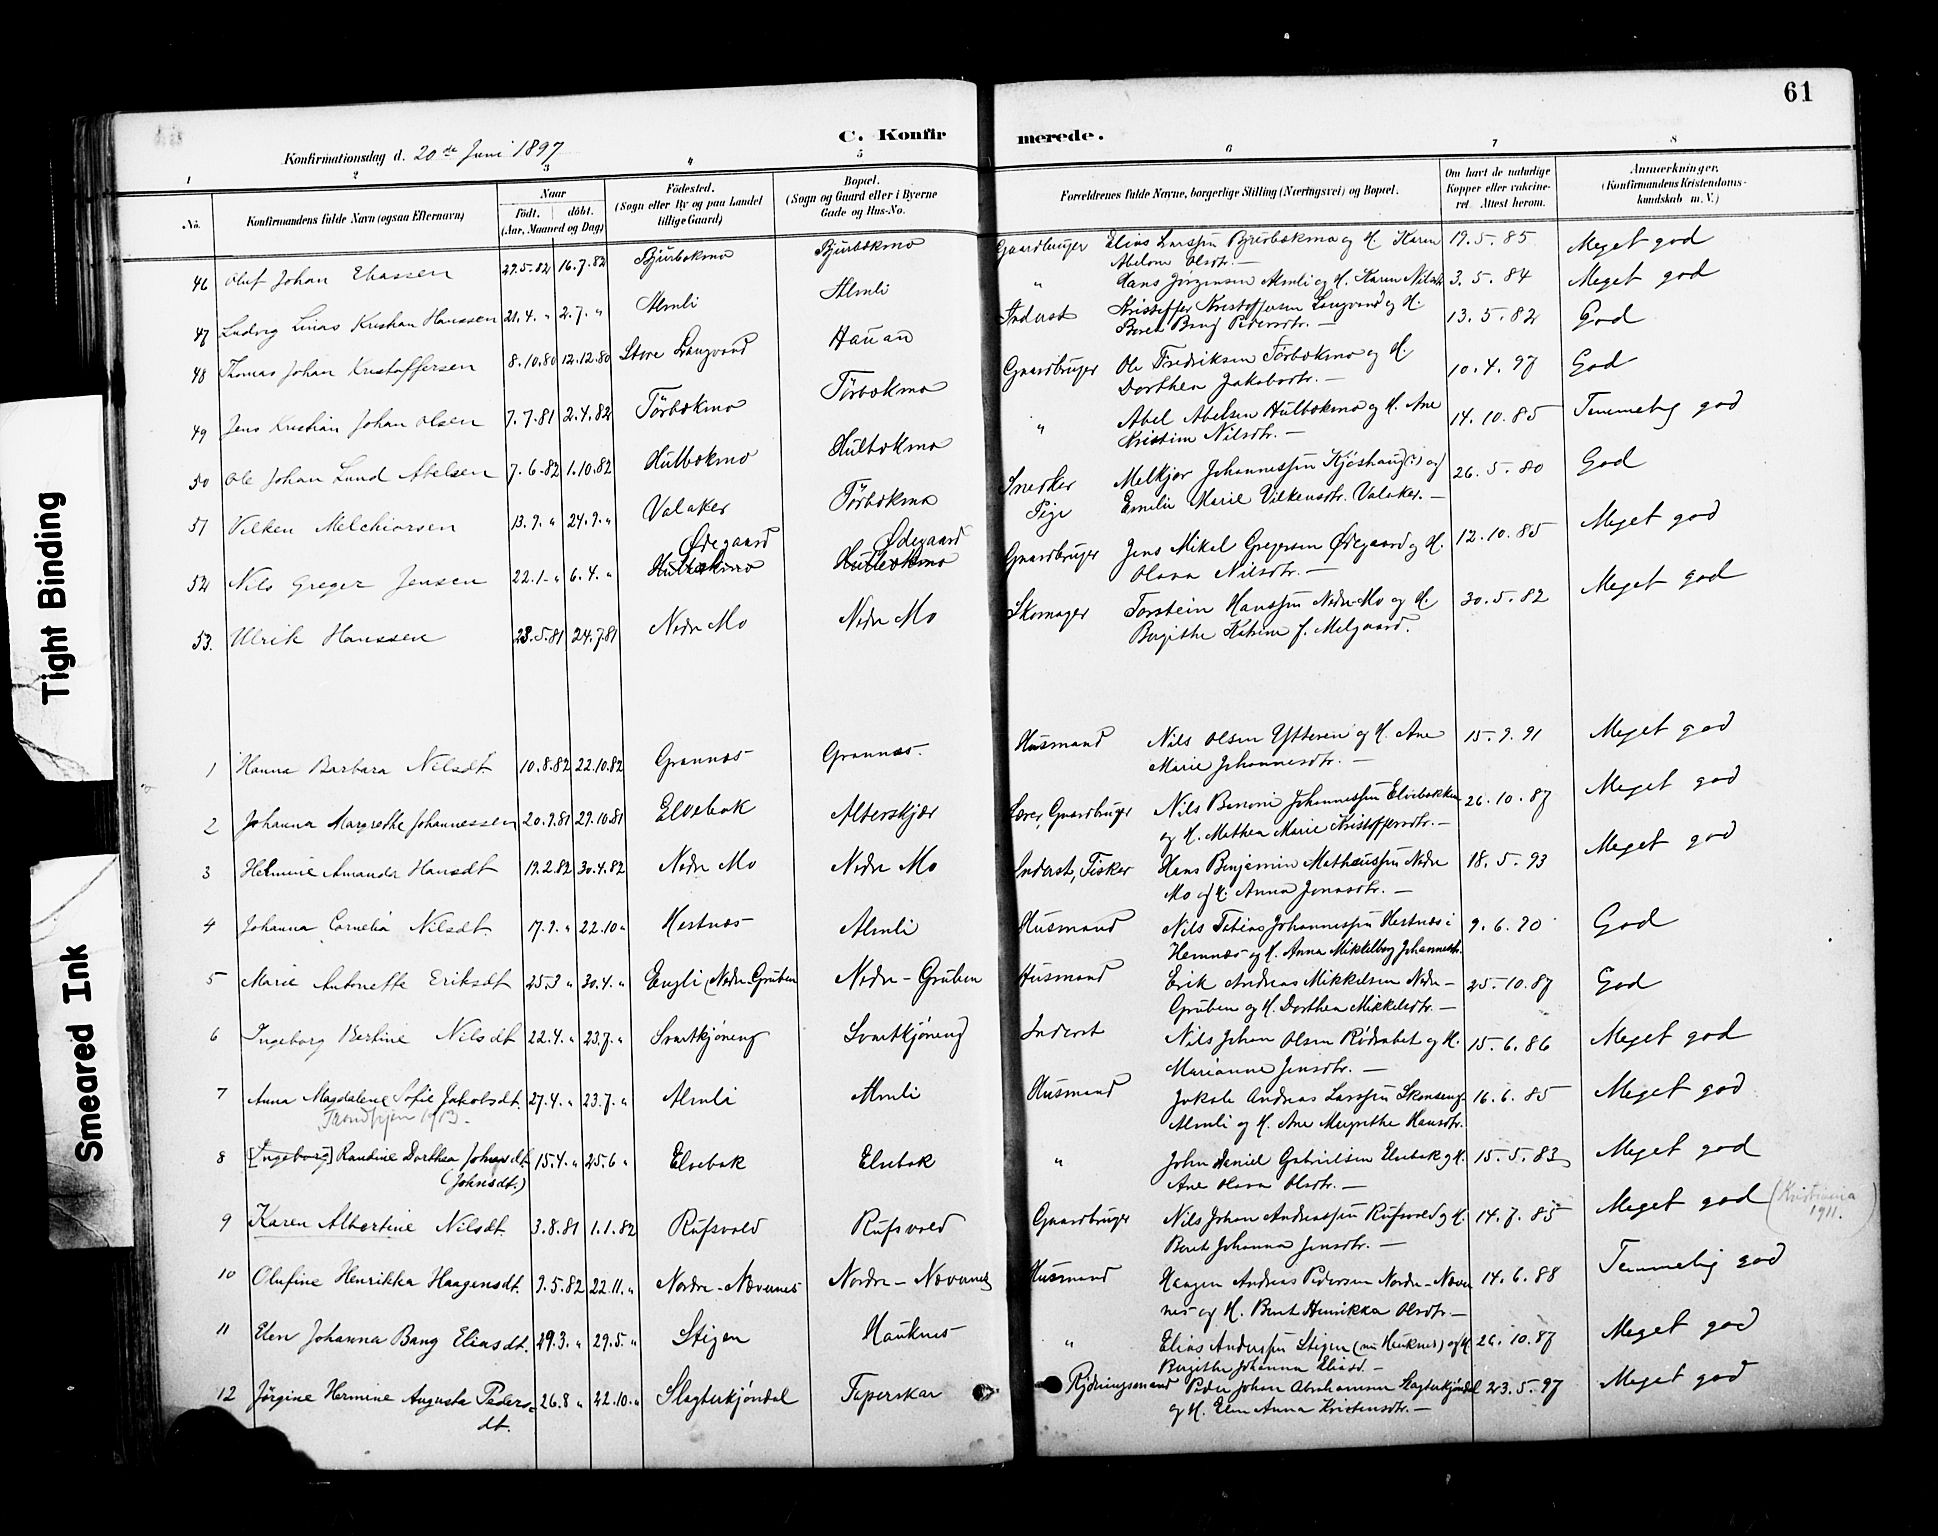 61
C. Konfirmerede.
Konfirmationsdag d. 20de Juni 1897
1 2 3 4 5 6 7 8
No. Konfirmandens fulde Navn (ogsaa Efternavn) Naar Født. døbt. (Aar, Maaned og Dag) Fødested. (Sogn eller By og paa Landet tillige Gaard) Bopæl. (Sogn og Gaard eller i Byerne Gade og Hus-No. Forældrenes fulde Navne, borgerlige Stilling (Næringsvei) og Bopæl. Om havt de naturlige Kopper eller vakcineret. Attest herom. Anmærkninger. (Konfirmandens Kristendomskundskab m. V.)
46 Oluf Johan Eliassen 29.5.82 16.7.82 Bjurbækmo Bjurbækmo Gaardbruger Elias Larssen Bjurbækmo og H. Karen 19.5.85 Meget god
Abelone Olsdtr. —
47 Ludvig Linas Kristian Hanssen 21.4. " 2.7. " Almli Almli " Hans Jørgensen Almli og H. Karen Nilsdtr 3.5.84 Meget god
48 Thomas Johan Kristoffersen 8.10.80 12.12.80 Store Langvand Hauan Inderst Kristoffer Kristoffersen Langvand og H. 13.5.82 God
Beret Bang Pedersdtr. —
49 Jens Kristian Johan Olsen 7.7.81 2.4.82 Tørbækmo Tørbækmo Gaardbruger Ole Fredriksen Tørbækmo og H. 10.4.97 God
Dorthea Jakobsdtr. —
50 Ole Johan Lund Abelsen 7.6.82 1.10.82 Hulbækmo Hulbækmo " Abel Abelsen Hulbækmo og H. Ane 14.10.85 Temmelig god
Kristine Nilsdtr. —
51 Vilken Melchiorsen 13.9. " 24.9. " Valaker Tørbækmo Snedker Melkjor Johannessen Kjøshaug (?) og 26.5.80 God
Pige Emilie Marie Vilkensdtr. Valaker. —
Ødegaard Ødegaard
52 Nils Greger Jensen 22.1. " 6.4. " Hulbækmo Hulbækmo Gaardbruger Jens Mikal Gregersen Ødegaard og H. 12.10.85 Meget god
Olava Nilsdtr. —
53. Ulrik Hanssen 23.5.81 24.7.81 Nedre Mo Nedre Mo Skomager Torstein Hanssen Nedre-Mo og H. 30.5.82 Meget god
Bergithe Katrine f. Melgaard.
1 Hanna Barbara Nilsdt. 10.8.82 22.10.82 Grannæs Grannæs. Husmand Nils Olsen Ytteren og H. Ane 15.9.91 Meget god
Marie Johannesdtr. —
2 Johanna Margrethe Johannessen 20.9.81 29.10.81 Elvebak Alterskjær Lærer, Gaardbruger Nils Benoni Johannessen Elvebakken 26.10.87 Meget god
og H. Mathea Marie Kristoffersdtr. —
3 Helmine Amanda Hansdt 19.2.82 30.4.82 Nedre Mo Nedre Mo Inderst, Fisker Hans Benjamin Mathæussen Nedre 18.5.93 Meget god
Mo og H. Anna Jonasdtr. —
4 Johanna Cornelia Nilsdt. 17.9. " 22.10 " Hestnæs Almli Husmand Nils Tobias Johannessen Hestnæs i 9.6.90 God
Hemnæs og H. Anna Mikkelborg Johannesdtr.
5 Marie Antonette Eriksdt 25.3 " 30.4. " Engli (Nedre-Gruben Nedre-Gruben Husmand Erik Andreas Mikkelsen Nedre- 25.10.87 God
Gruben og H. Dorthea Mikkelsdtr. —
6 Ingeborg Bertine Nilsdt 22.4. " 23.7. " Svartkjøneng Svartkjøneng Inderst Nils Johan Olsen Rødsabet og H. 15.6.86 Meget god
Marianne Jensdtr. —
7 Anna Magdalene Sofie Jakobsdt. 27.4. " 23.7. " Almli Almli Husmand Jakob Andreas Larssen Skonseng 16.6.85 Meget god
Trondhjem 1913. Almli og H. Ane Margrethe Hansdtr.
8 [Ingeborg] Randine Dorthea Johnsdt. 15.4. " 25.6 " Elvebak Elvebak " John Daniel Gabrielsen Elvebak og H. 15.5.83 Meget god
(Johnsdt.) Ane Olava Olsdtr. —
9 Karen Albertine Nilsdt. 3.8.81 1.1.82 Rufsvold Rufsvold Gaardbruger Nils Johan Andreassen Rufsvold og H. 14.7.85 Meget god (Kristiania 1911.
Beret Johanna Jensdtr. —
10 Olufine Henrikka Haagensdt. 9.5.82 22.11. " Nordre-Nævernes Nordre-Nævernes Husmand Haagen Andreas Pedersen Nordre-Næver 14.6.88 Temmelig god
nes og H. Beret Henrikka Olsdtr. —
11 Elen Johanna Bang Eliasdt. 29.3. " 29.5. " Stigen Hauknes " Elias Anderssen Stigen (nu Hauknes) og H 26.10.87 Meget god
Bergithe Johanna Eliasd. —
12 Jørgine Hermine Augusta Peders- 26.8 " 22.10. " Slagterkjøndal Taperskar Rydningsmand Peder Johan Abrahamsen Slagterkjøndal 23.5.97 Meget god
dt. og H. Elen Anna Kristensdtr. —
Tight Binding
Smeared Ink